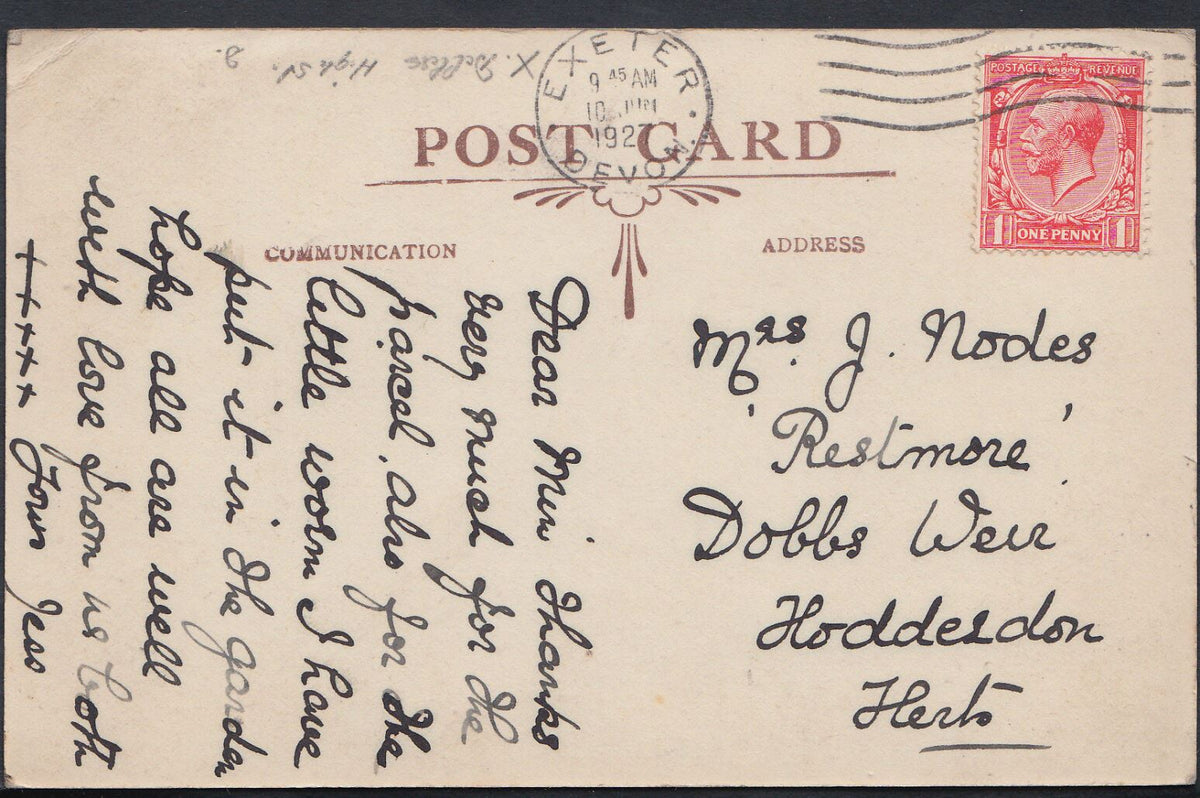 High St.
EXETER
9 45 AM
10 JUN
1927
DEVON
POSTAGE REVENUE
1 ONE PENNY 1
POST CARD
COMMUNICATION
ADDRESS
Dear Mini Thanks
very Much for the
parcel, also for the
little worm I have
put it in the garden
hope all are well
with love from us both
++xxx Your Jess
Mrs. J. Nodes
'Restmore'
Dobbs Weir
Hoddesdon
Herts